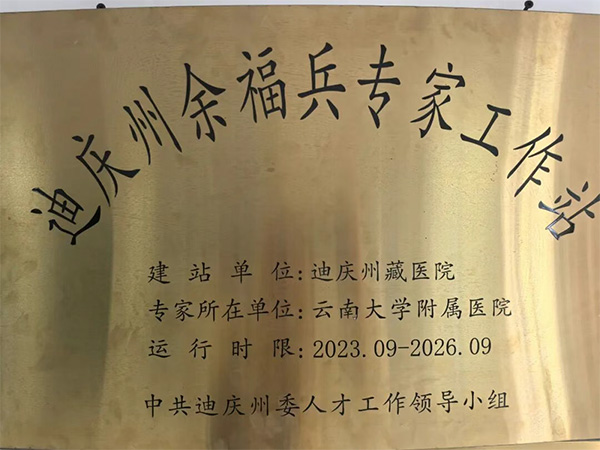 迪庆州余福兵专家工作站
建站单位:迪庆州藏医院
专家所在单位:云南大学附属医院
运行时限:2023.09-2026.09
中共迪庆州委人才工作领导小组